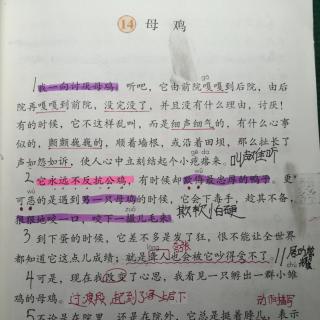 14 母鸡
1我一向讨厌母鸡。听吧，它由前院嘎嘎到后院，由后
gā
院再嘎嘎到前院，没完没了，并且没有什么理由，讨厌！
有的时候，它不这样乱叫，而是细声细气的，有什么心事
似的，颤颤巍巍的，顺着墙根，或沿着田坝，那么扯长了
gē da
声如怨如诉，使人心中立刻结起个小疙瘩来。
叫声难听
2它永远不反抗公鸡，有时候却欺侮最忠厚的鸭子。更
可恶的是遇到另一只母鸡的时候，它会下毒手，趁其不备，
狠狠地咬一口，咬下一撮儿毛来。
欺软怕硬
3到下蛋的时候，它差不多是发了狂，恨不能让全世界
都知道它这点儿成绩；就是聋人也会被它吵得受不了。
夸张
4可是，现在我改变了心思，我看见一只孵出一群小雏
鸡的母鸡。
过渡段 起到了承上启下
5不论是在院里，还是在院外，它总是挺着脖儿，表示